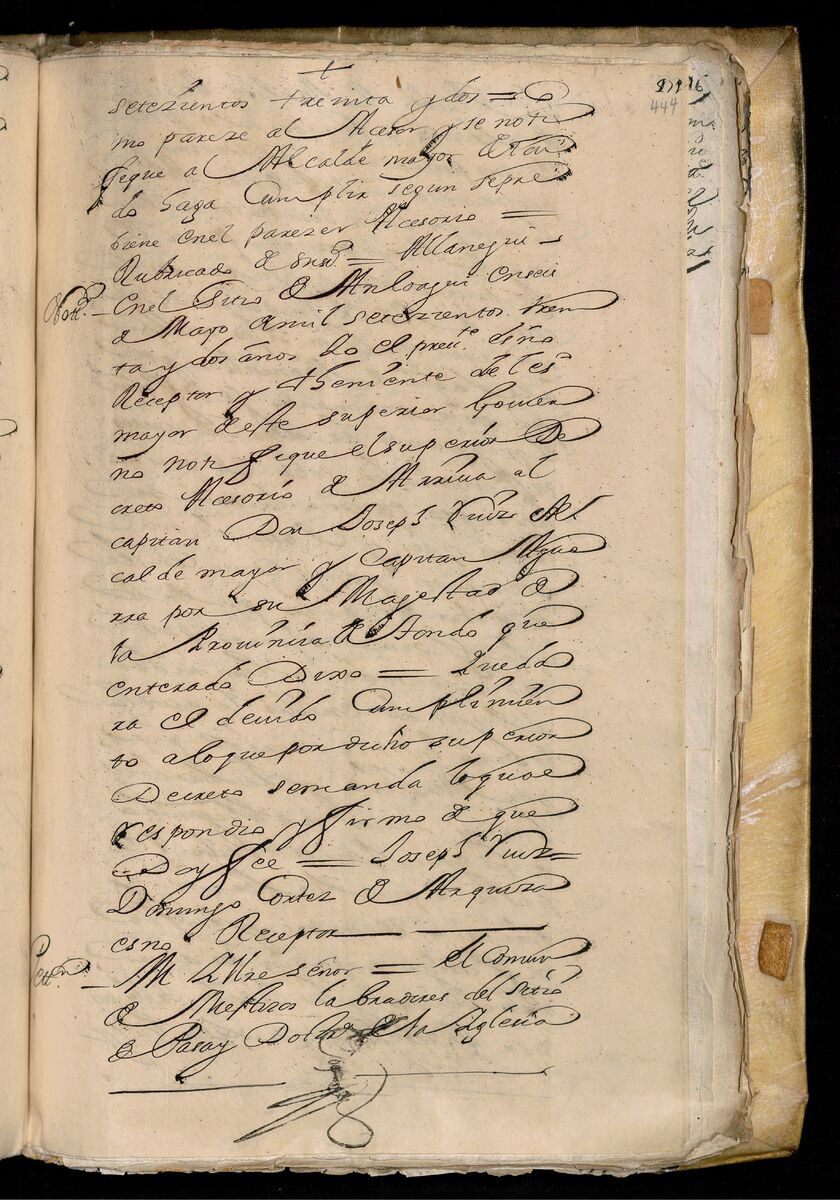 +
444
setezientos treinta y dos = Co
mo pareze al Acesor y se noti
fique al Alcalde mayor de Ton
do haga Cumplir segun sepre
biene enel parezer Acesorio =
Rubricado de su sa. = Allanegui -
Nottn. - Enel Sitio de Anloagui en seis
de Mayo de mil setezientos trein
ta y dos años Yo el prezte. esno
Receptor y theniente de el esno
mayor deste superior Govier
no notifique el superior De
creto Acesorio de Arriva al
capitan Don Joseph Ruiz Al
calde mayor y Capitan Aguer
rra por su Magestad de
la Provincia de tondo que
enterado Dixo = Que da
ra el devido Cumplimien
to a loque por dicho superior
Decreto semanda loque
respondio y firmo de que
Doy fee = Joseph Ruiz =
Domingo Cortez de Arquiza
esno Receptor
Pettn. - M Illre señor = El Comun
de Mestizos labradores del sitio
de Pasay de la Iglesia